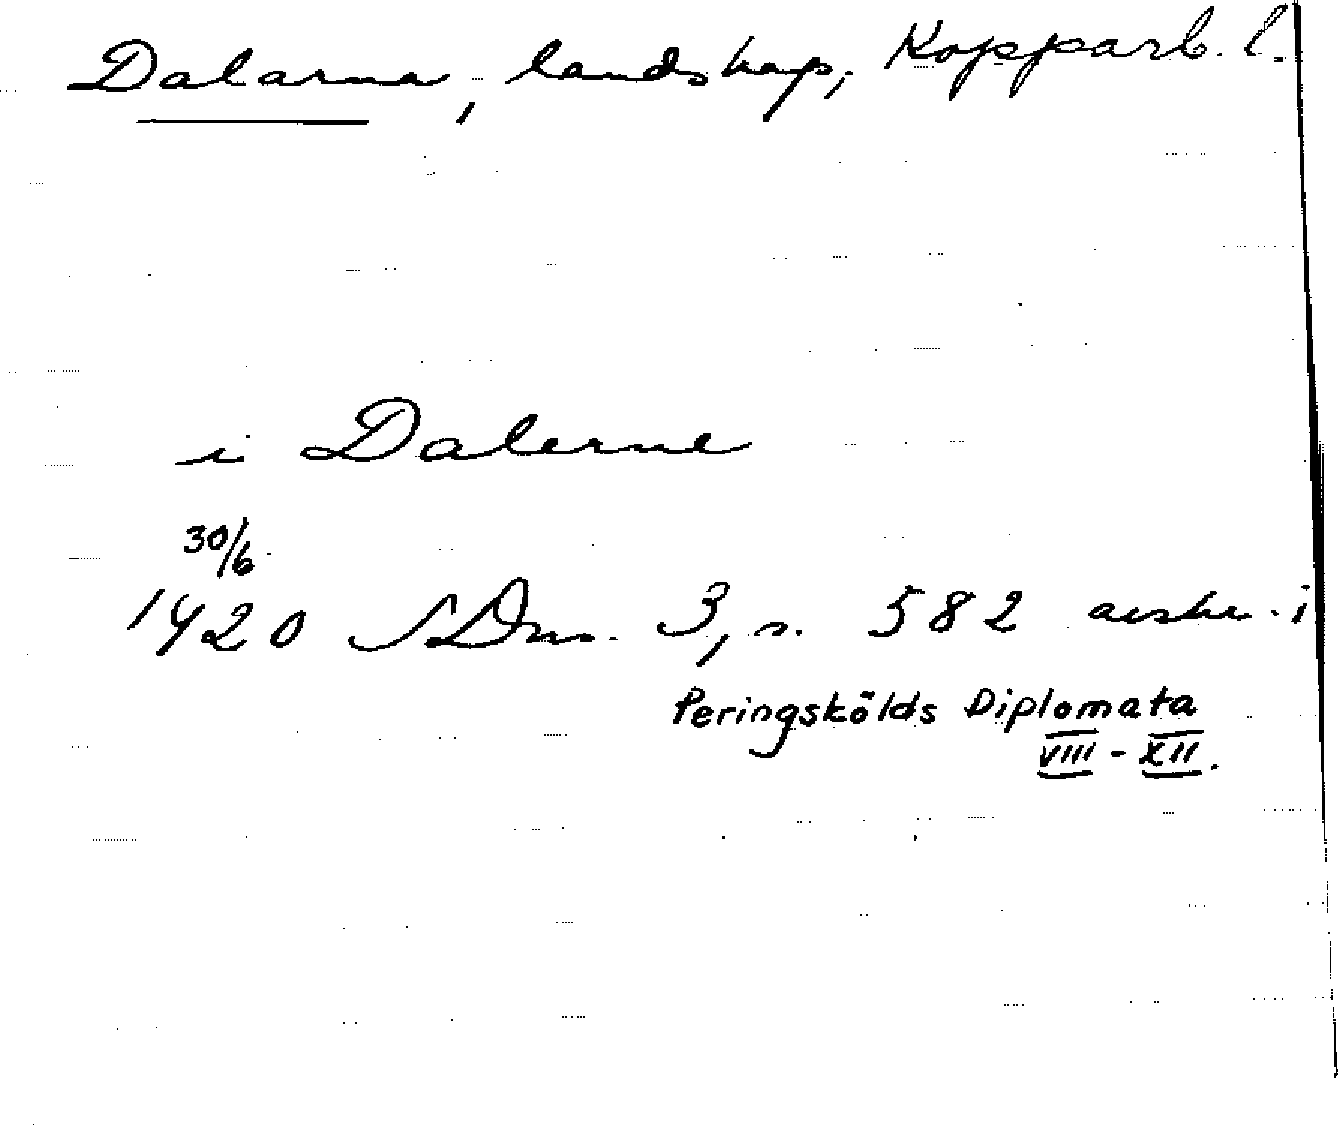 Dalarna, landskap, Kopparb. l.
i Dalerne
30/6
1420 SDns. 3, s. 582 avskr. i
Peringskölds Diplomata
VIII - XII.